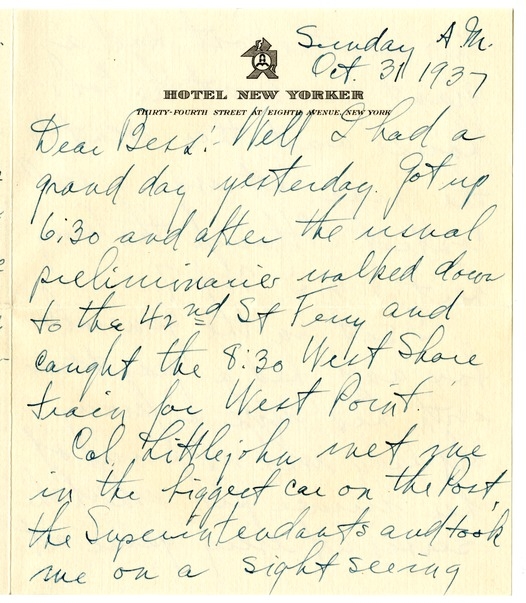 Sunday A.M.
Oct. 31 1937
HOTEL NEW YORKER
THIRTY-FOURTH STREET AT EIGHTH AVENUE, NEW YORK
Dear Bess:- Well I had a
grand day yesterday. Got up
6:30 and after the usual
preliminaries walked down
to the 42nd St Ferry and
caught the 8:30 West Shore
train for West Point.
Col. Littlejohn met me
in the biggest car on the Post,
the Superintendants and took
me on a sight seeing